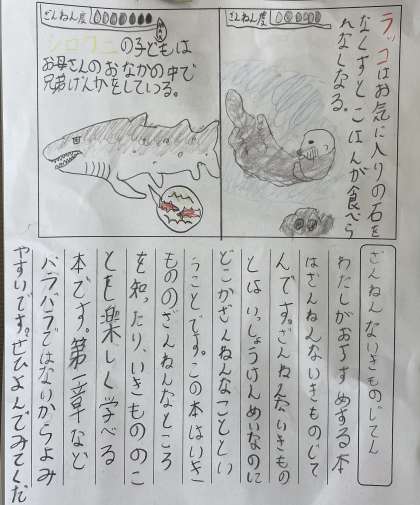 ざんねん度
シロワニの子どもは
お母さんのおなかの中で
兄弟げんかをしている。
ざんねん度
ラッコはお気に入りの石を
なくすとごはんが食べら
れなくなる。
ざんねんないきものじてん
わたしがおすすめする本
はざんねんないきものじて
んです。ざんねんないきもの
とはいっしょうけんめいなのに
どこかざんねんなこととい
うことです。この本はいき
もののざんねんなところ
を知ったり、いきもののこ
とを楽しく学べる
本です。第一章など
バラバラではないからよみ
やすいです。ぜひよんでみてくだ